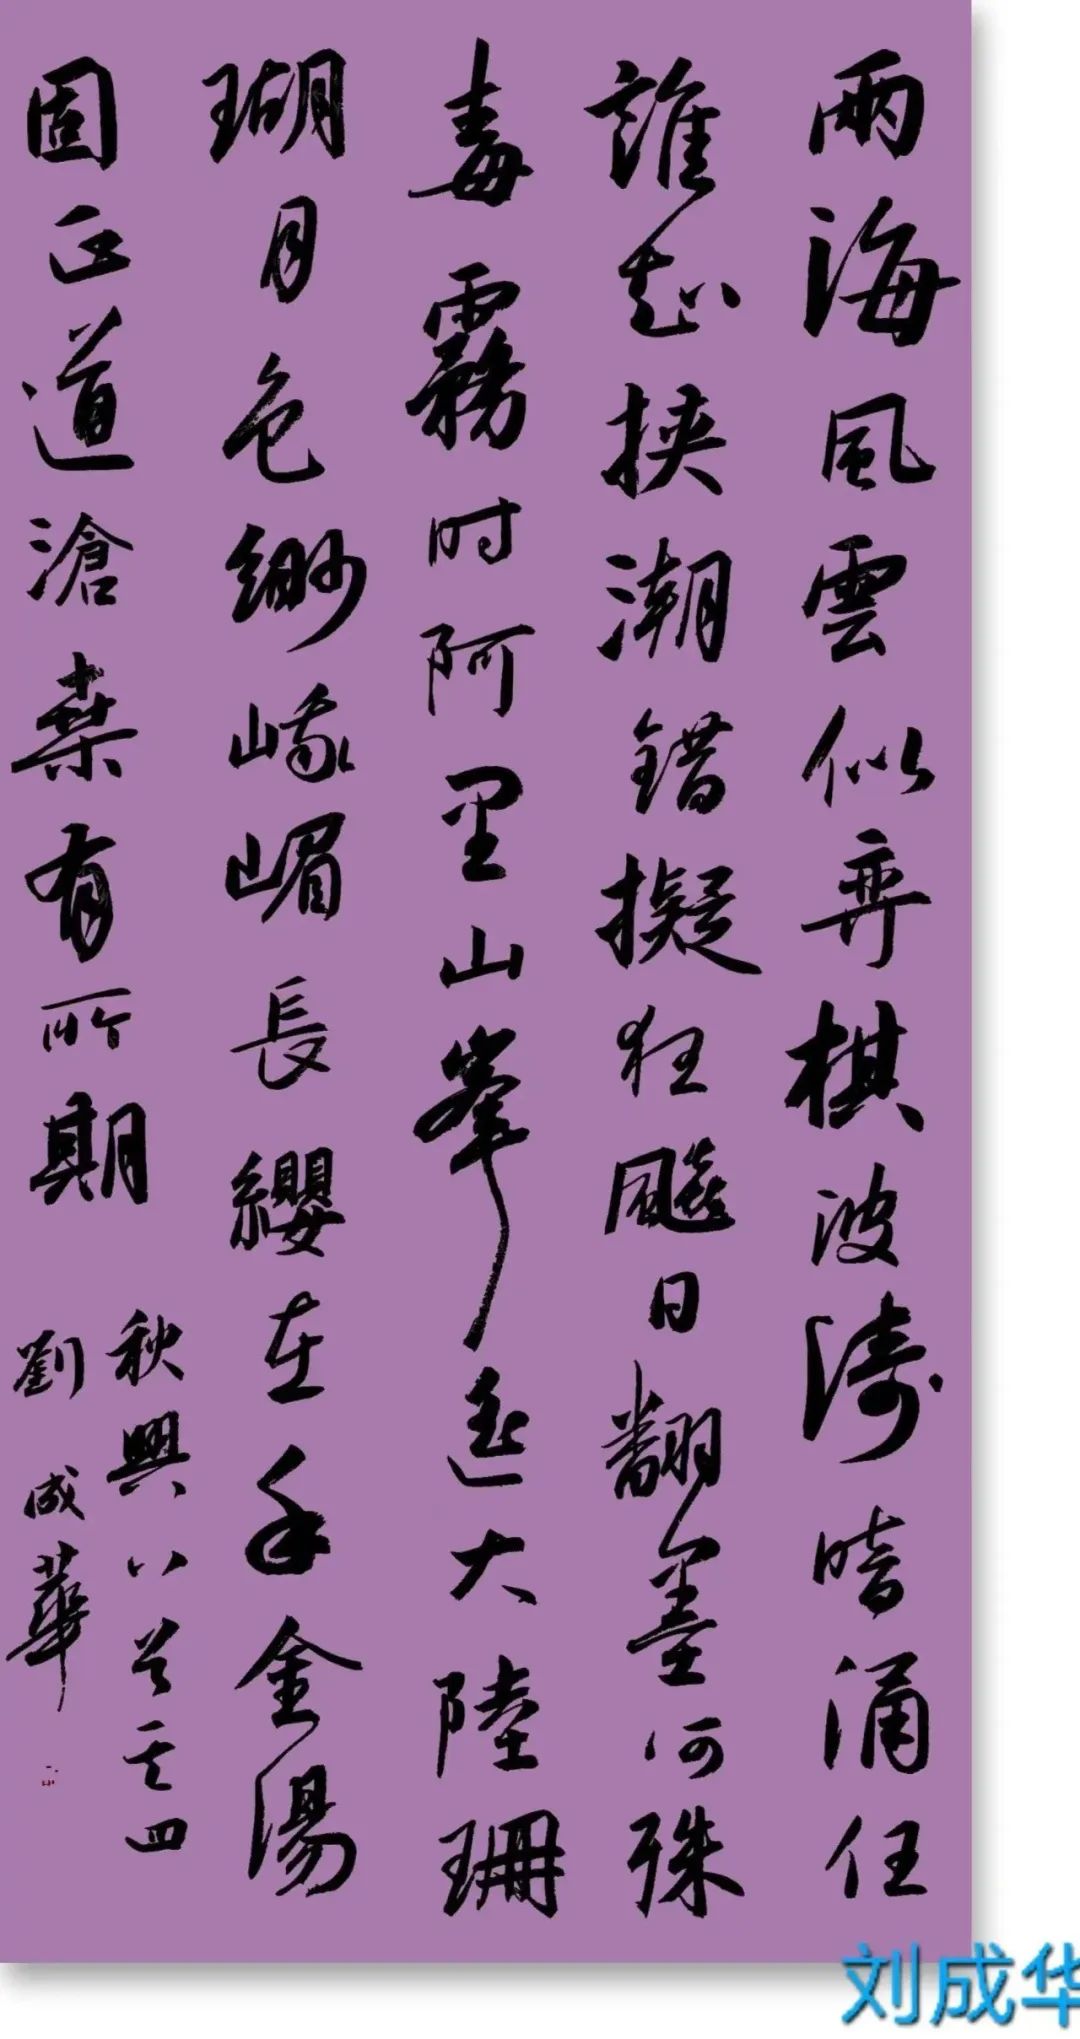 兩海風雲似弈棋波濤暗涌任
誰挾潮錯擬狂飈日翻墨何殊
毒霧时阿里山峯遙大陸珊
瑚月色緲峨嵋長纓在手金湯
固正道滄桑有所期
秋興八首其四
劉成華
刘成华